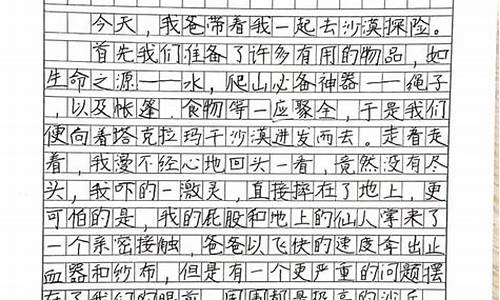 今天,我爸带着我一起去沙漠探险。
首先我们准备了许多有用的物品,如
生命之源——水,爬山必备神器——绳子
,以及帐篷、食物等一应聚全,于是我们
便向着塔克拉玛干沙漠进发而去。走着走
着,我漫不经心地回头一看,竟然没有尽
头,我吓的一激灵,直接摔在了地上,更
可怕的是,我的屁股和地上的仙人掌来了
一个亲密接触,爸爸以飞快的速度拿出止
血器和纱布,但是有一个更严重的问题摆
在了我们的眼前,周围都是极高的沙丘